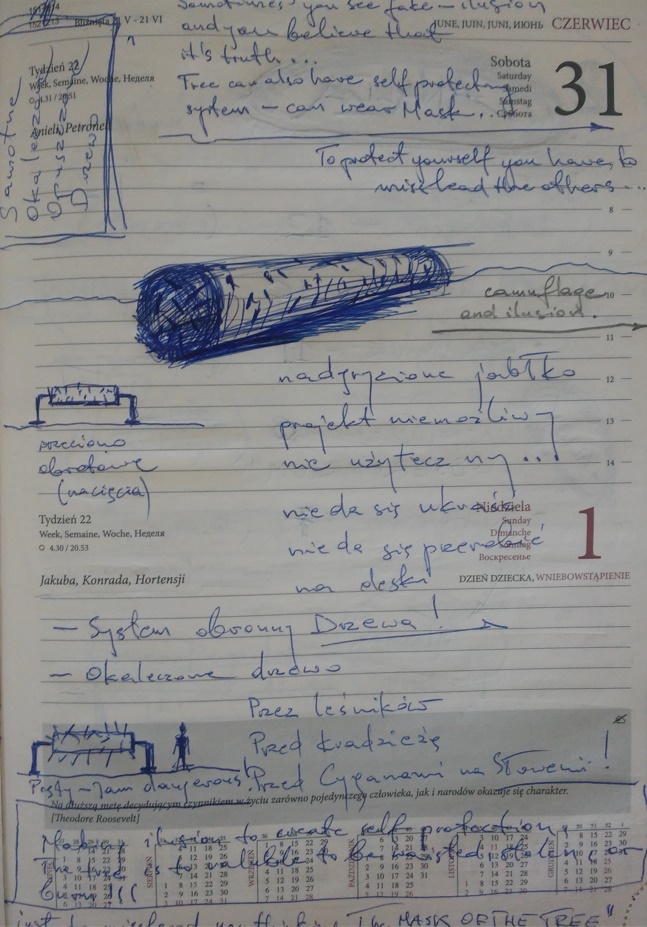 Sometimes you see fake – ilusion
Bliźnięta V - 21 VI
and you believe that
JUNE, JUIN, JUNI, ИЮНЬ CZERWIEC
it's truth...
Tydzień 22
Week, Semaine, Woche, Неделя
4.31 / 20.51
Anieli, Petroneli
Samotne
Okaleczone
Drzewo
Tree can also have self protecting
system – can wear Mask...
Sobota
Saturday
Samedi
Samstag
Суббота
31
To protect yourself you have to
misslead the others...
8
9
camuflage
10
and ilusion.
11
nadgryzione jabłko
12
projekt niemożliwy
13
nie użyteczny...
14
przeciono
obrotowe
(nacięcia)
nie da się ukraść
nie da się przerobić
na deski
Tydzień 22
Week, Semaine, Woche, Неделя
4.30 / 20.53
Niedziela
Sunday
Dimanche
Sonntag
Воскресенье
1
Jakuba, Konrada, Hortensji
DZIEŃ DZIECKA, WNIEBOWSTĄPIENIE
– System obronny Drzewa!
– Okaleczone drzewo
Przez leśników
Przed kradzieżą
Przed Cyganami na Słowenii!
I am dangerous!
Na dłuższą metę decydującym czynnikiem w życiu zarówno pojedynczego człowieka, jak i narodów okazuje się charakter.
[Theodore Roosevelt]
ilusion to create self protection,
The tree is to valuable to be wasted
burn !!!
"The MASK OF THE TREE"